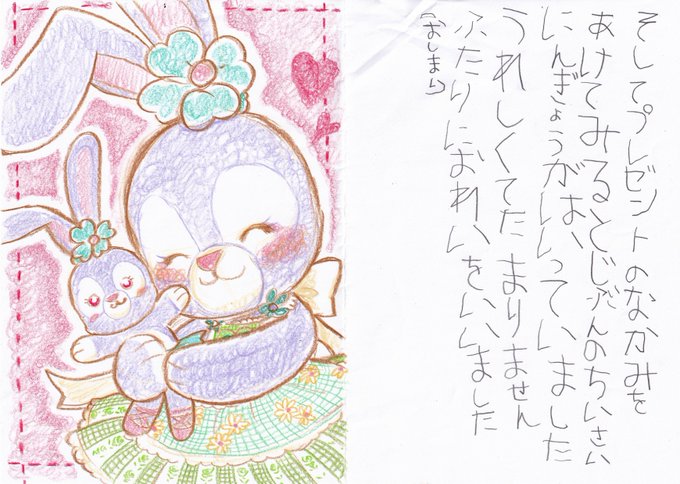 そしてプレゼントのなかみを
あけてみるとじぶんのちいさい
にんぎょうがはいっていました
うれしくてたまりません
ふたりにおれいをいいました
(おしまい)